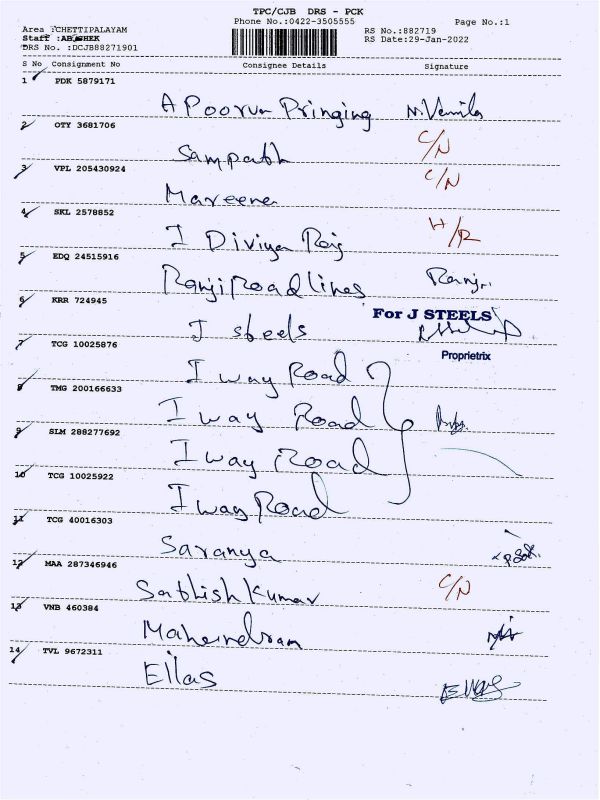 TPC/CJB DRS - PCK
Phone No.:0422-3505555 Page No.:1
Area :CHETTIPALAYAM RS No.:882719
Staff :ABISHEK RS Date:29-Jan-2022
DRS No. :DCJB88271901
S No Consignment No Consignee Details Signature
1 PDK 5879171
A Poorva Pringing M. Vennila
2 OTY 3681706
Sampath C/N
3 VPL 205430924
Mareena C/N
4 SKL 2578852
I Diviya Raj H/R
5 EDQ 24515916
Ranji Road lines Ranji
6 KRR 724945
J steels For J STEELS
Proprietrix
7 TCG 10025876
I way Road
8 TMG 200166633
I way Road
9 SLM 288277692
I way Road
10 TCG 10025922
I way Road
11 TCG 40016303
Saranya
12 MAA 287346946
Sathish Kumar C/N
13 VNB 460384
Maheindran
14 TVL 9672311
Ellas Ellas